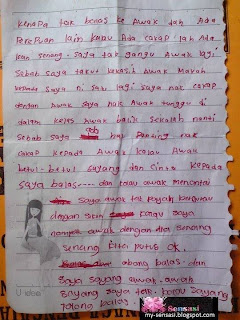 Kenapa tak balas ke awak dah Ada
Perempuan lain kalau Ada cakap lah Ada
kan senang. Saya tak ganggu awak lagi
Sebab saya takut kekasih awak Marah
kepada saya ni sah lagi saya nak cakap
dengan awak saya nak awak tunggu di
dalam kelas awak balik sekolah nanti
Sebab saya ada hal Penting nak
cakap kepada awak kalau awak
betul-betul sayang dan cinta kepada
saya balas---- dan kalau awak mencintai
saya awak tak payah bergurau
dengan skin kalau saya
nampak awak dengan dia senang
senang kita putus ok.
abang balas dan
saya sayang awak. awak
sayang saya tak. kalau sayang
tolong balas
U-idea
Sensasi
my-sensasi.blogspot.com